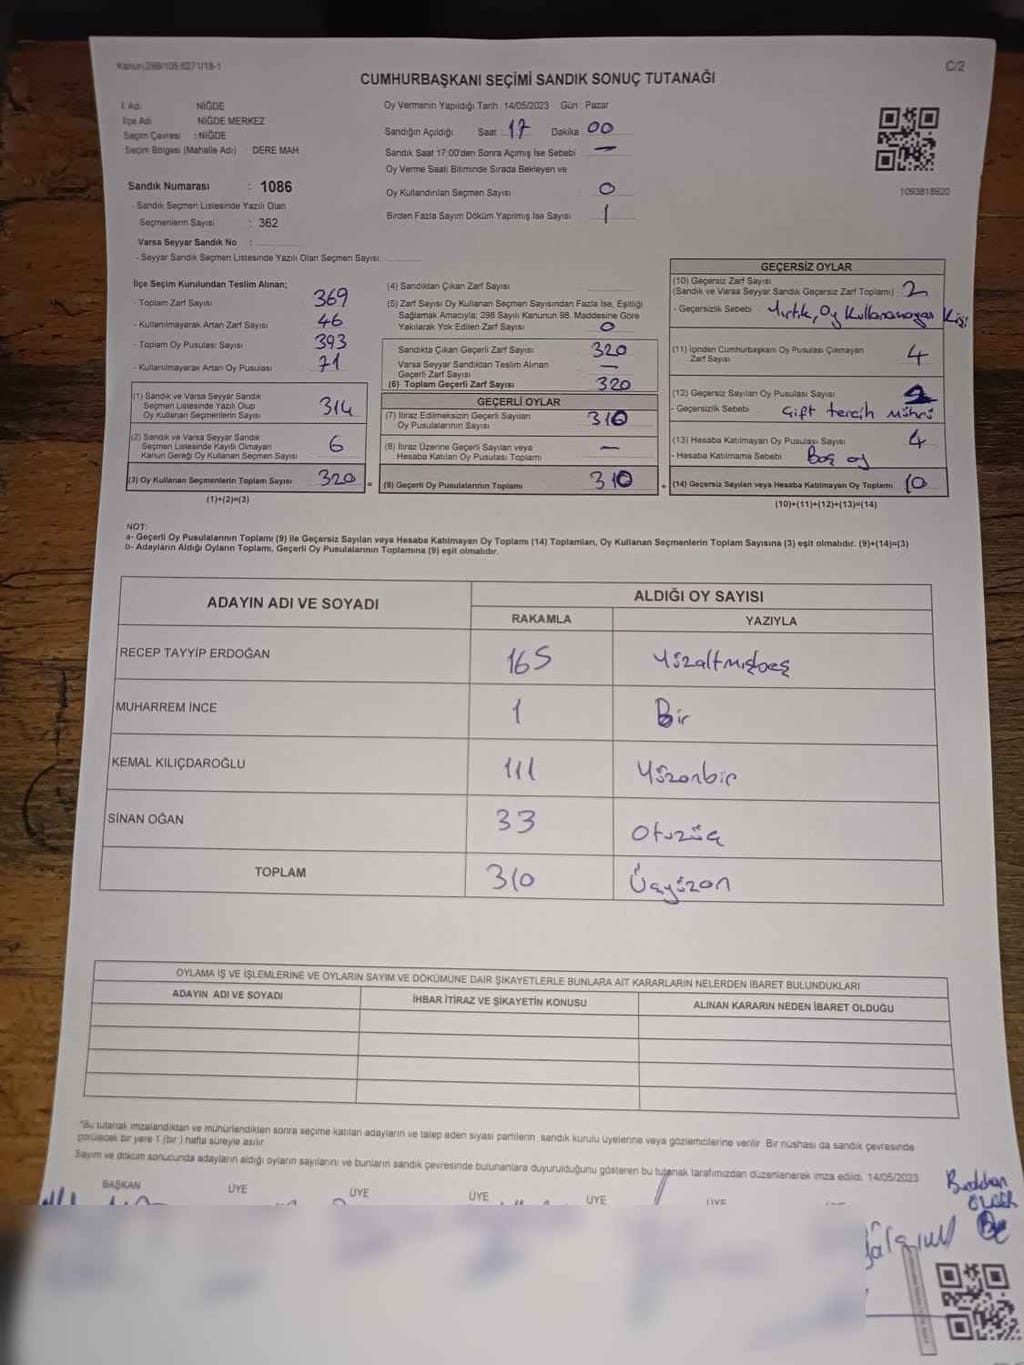 Kanun:298/105 6271/18-1
C/2
CUMHURBAŞKANI SEÇİMİ SANDIK SONUÇ TUTANAĞI
İl Adı NİĞDE
İlçe Adı NİĞDE MERKEZ
Seçim Çevresi : NİĞDE
Seçim Bölgesi (Mahalle Adı) DERE MAH
Sandık Numarası : 1086
- Sandık Seçmen Listesinde Yazılı Olan
Seçmenlerin Sayısı : 362
Varsa Seyyar Sandık No :
- Seyyar Sandık Seçmen Listesinde Yazılı Olan Seçmen Sayısı
Oy Vermenin Yapıldığı Tarih : 14/05/2023 Gün : Pazar
Sandığın Açıldığı Saat 17 Dakika 00
Sandık Saat 17:00'den Sonra Açımış İse Sebebi —
Oy Verme Saati Bitiminde Sırada Bekleyen ve
Oy Kullandırılan Seçmen Sayısı 0
Birden Fazla Sayım Döküm Yapılmış İse Sayısı 1
1093818920
İlçe Seçim Kurulundan Teslim Alınan;
- Toplam Zarf Sayısı 369
- Kullanılmayarak Artan Zarf Sayısı 46
- Toplam Oy Pusulası Sayısı 393
- Kullanılmayarak Artan Oy Pusulası 71
(1) Sandık ve Varsa Seyyar Sandık
Seçmen Listesinde Yazılı Olup
Oy Kullanan Seçmenlerin Sayısı 314
(2) Sandık ve Varsa Seyyar Sandık
Seçmen Listesinde Kayıtlı Olmayan
Kanun Gereği Oy Kullanan Seçmen Sayısı 6
(3) Oy Kullanan Seçmenlerin Toplam Sayısı 320
(1)+(2)=(3)
(4) Sandıktan Çıkan Zarf Sayısı
(5) Zarf Sayısı Oy Kullanan Seçmen Sayısından Fazla İse, Eşitliği
Sağlamak Amacıyla; 298 Sayılı Kanunun 98. Maddesine Göre
Yakılarak Yok Edilen Zarf Sayısı 0
Sandıkta Çıkan Geçerli Zarf Sayısı 320
Varsa Seyyar Sandıktan Teslim Alınan
Geçerli Zarf Sayısı —
(6) Toplam Geçerli Zarf Sayısı 320
GEÇERLİ OYLAR
(7) İtiraz Edilmeksizin Geçerli Sayılan
Oy Pusulalarının Sayısı 310
(8) İtiraz Üzerine Geçerli Sayılan veya
Hesaba Katılan Oy Pusulası Toplamı —
= (9) Geçerli Oy Pusulalarının Toplamı 310
GEÇERSİZ OYLAR
(10) Geçersiz Zarf Sayısı
(Sandık ve Varsa Seyyar Sandık Geçersiz Zarf Toplamı) 2
- Geçersizlik Sebebi Yırtık, Oy Kullanamayan Kişi
(11) İçinden Cumhurbaşkanı Oy Pusulası Çıkmayan
Zarf Sayısı 4
(12) Geçersiz Sayılan Oy Pusulası Sayısı
- Geçersizlik Sebebi Çift tercih mührü
(13) Hesaba Katılmayan Oy Pusulası Sayısı 4
- Hesaba Katılmama Sebebi Boş oy
+ (14) Geçersiz Sayılan veya Hesaba Katılmayan Oy Toplamı 10
(10)+(11)+(12)+(13)=(14)
NOT:
a- Geçerli Oy Pusulalarının Toplamı (9) ile Geçersiz Sayılan veya Hesaba Katılmayan Oy Toplamı (14) Toplamları, Oy Kullanan Seçmenlerin Toplam Sayısına (3) eşit olmalıdır. (9)+(14)=(3)
b- Adayların Aldığı Oyların Toplamı, Geçerli Oy Pusulalarının Toplamına (9) eşit olmalıdır.
ADAYIN ADI VE SOYADI
ALDIĞI OY SAYISI
RAKAMLA YAZIYLA
RECEP TAYYİP ERDOĞAN 165 Yüzaltmışbeş
MUHARREM İNCE 1 Bir
KEMAL KILIÇDAROĞLU 111 Yüzonbir
SİNAN OĞAN 33 Otuzüç
TOPLAM 310 Üçyüzon
OYLAMA İŞ VE İŞLEMLERİNE VE OYLARIN SAYIM VE DÖKÜMÜNE DAİR ŞİKAYETLERLE BUNLARA AİT KARARLARIN NELERDEN İBARET BULUNDUKLARI
ADAYIN ADI VE SOYADI İHBAR İTİRAZ VE ŞİKAYETİN KONUSU ALINAN KARARIN NEDEN İBARET OLDUĞU
"Bu tutanak imzalandıktan ve mühürlendikten sonra seçime katılan adayların ve talep eden siyasi partilerin, sandık kurulu üyelerine veya gözlemcilerine verilir. Bir nüshası da sandık çevresinde
görülecek bir yere 1 (bir) hafta süreyle asılır.
Sayım ve döküm sonucunda adayların aldığı oyların sayılarını ve bunların sandık çevresinde bulunanlara duyurulduğunu gösteren bu tutanak tarafımızdan düzenlenerek imza edildi. 14/05/2023
BAŞKAN ÜYE ÜYE ÜYE ÜYE ÜYE